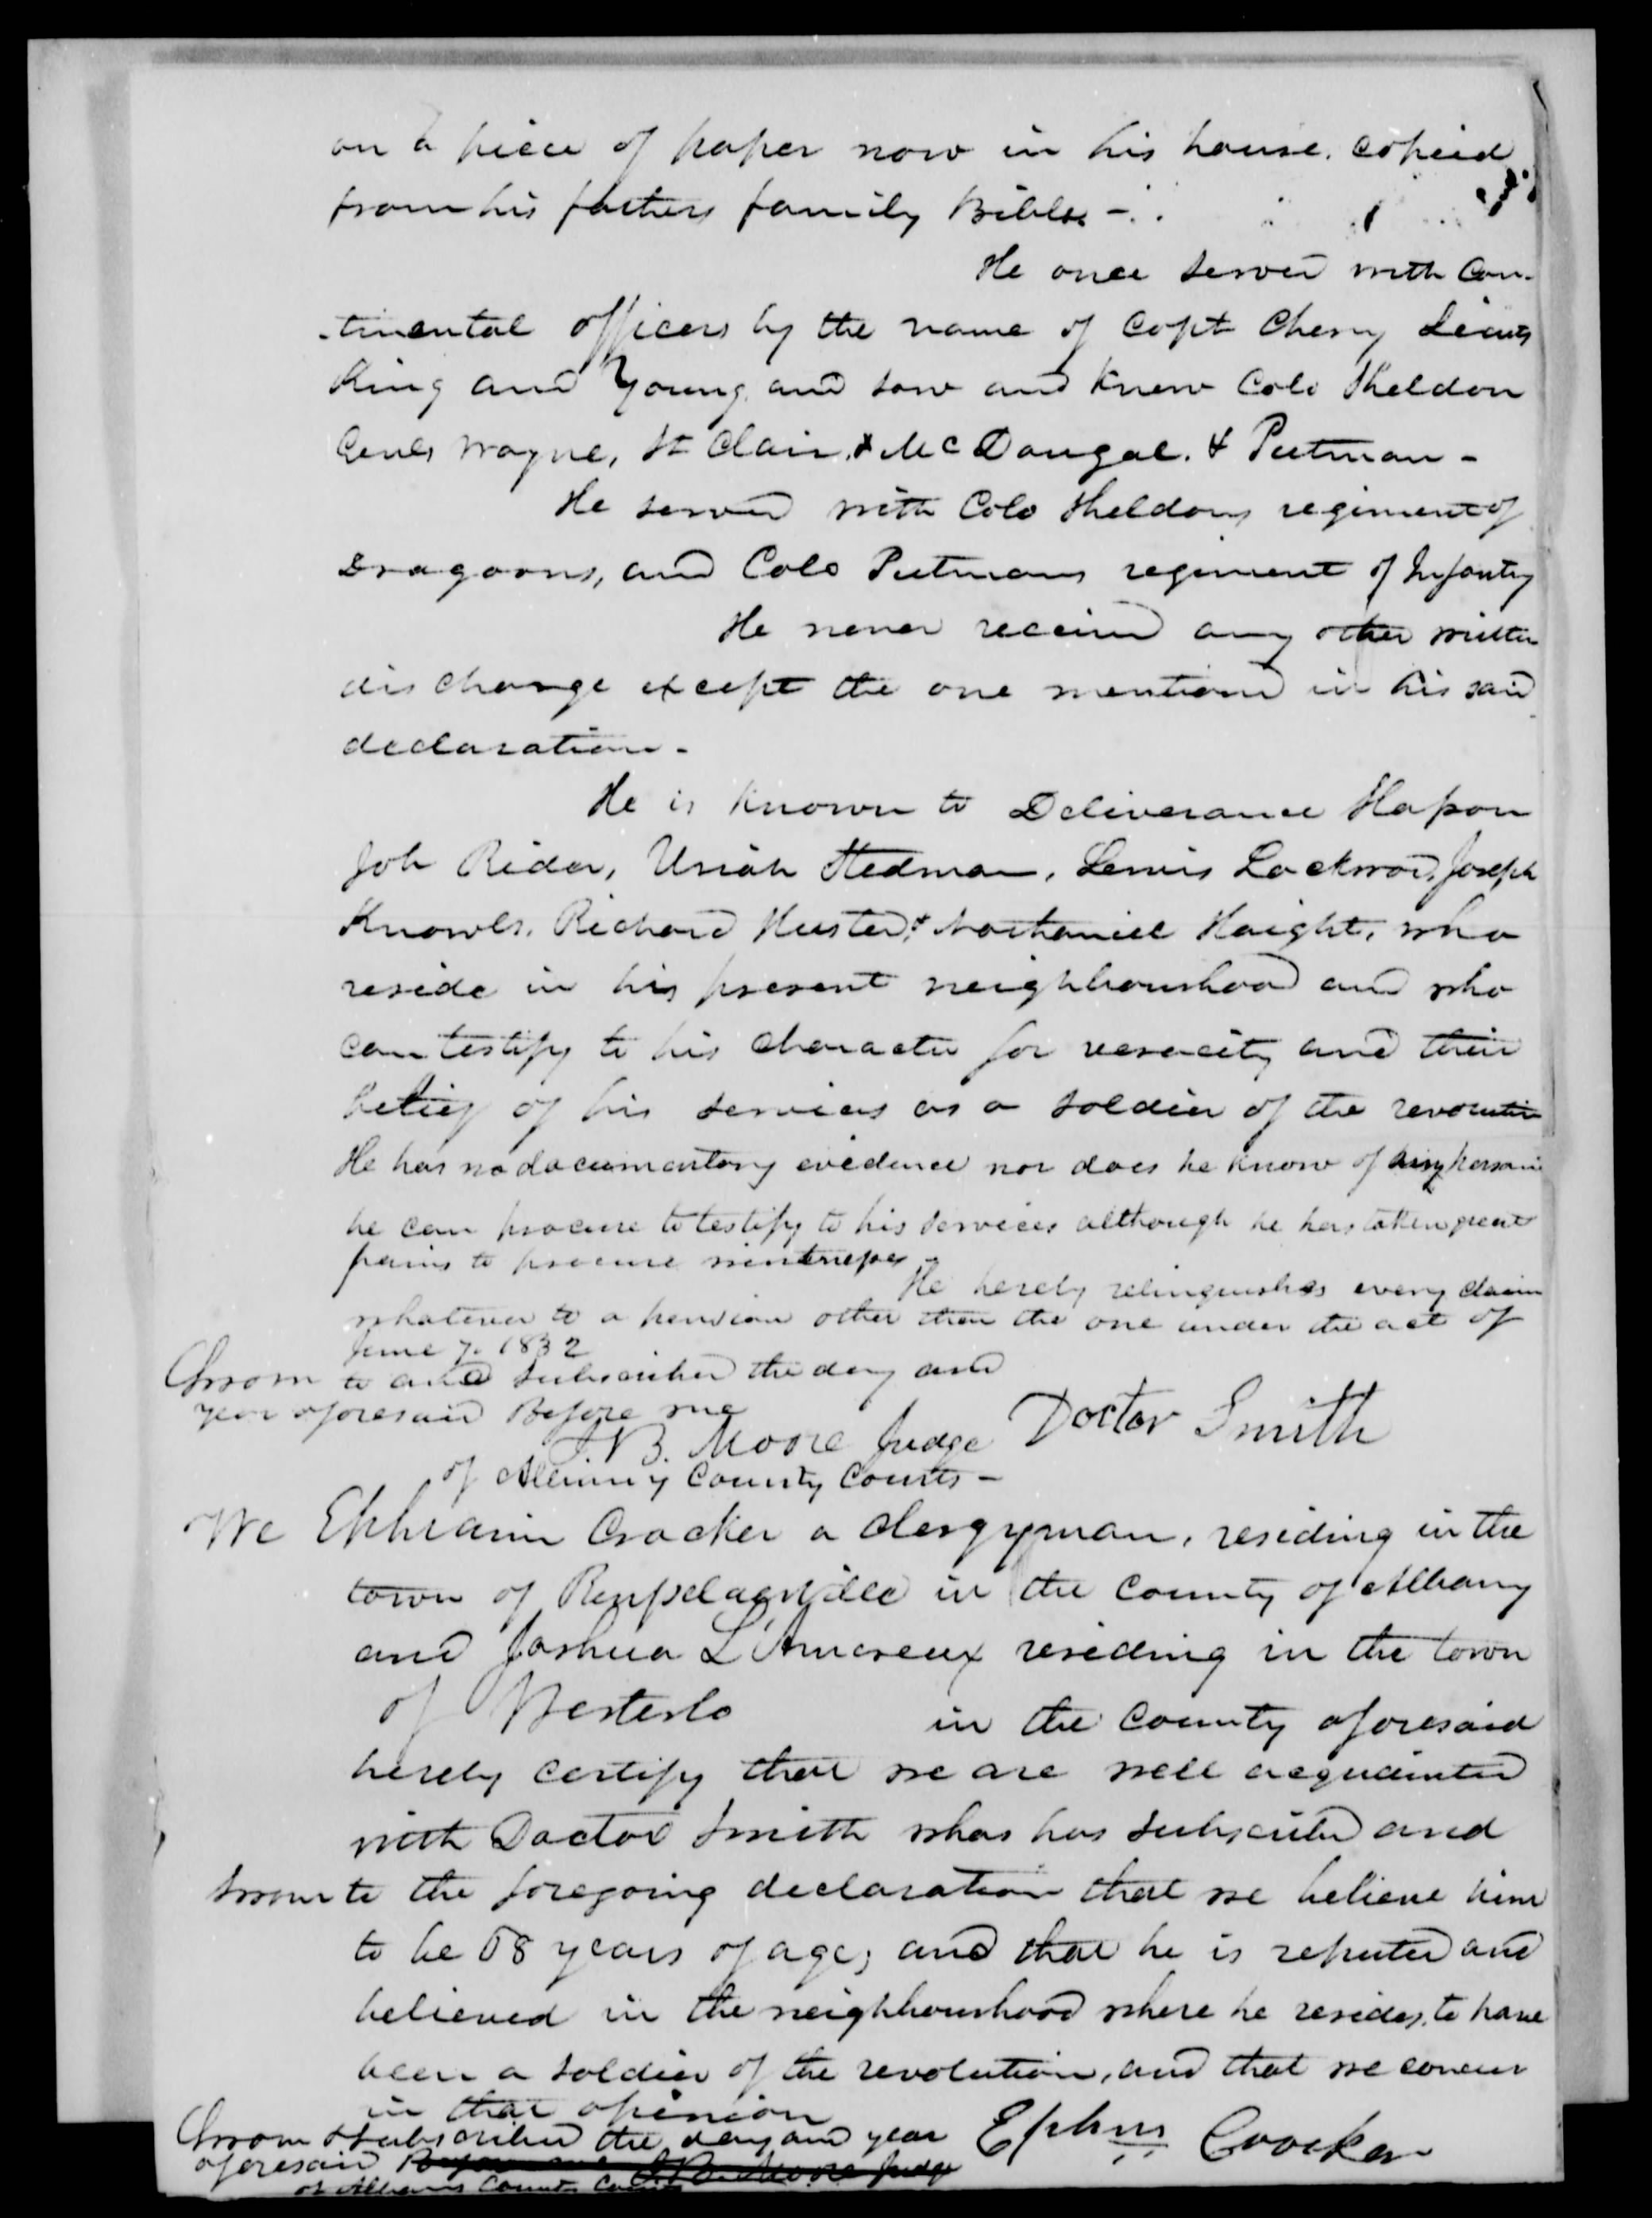 on a piece of paper now in his house. Copied
from his fathers family Bible -
He once served with Con-
-tinental officers by the name of Capt Cherry Lieuts
King and Young, and saw and knew Colo Sheldon
Genls Wayne, St Clair, & McDougal. & Putman -
He served with Colo Sheldons regiment of
Dragoons, and Colo Putmans regiment of Infantry
He never received any other written
discharge except the one mentiond in his said
declaration -
He is known to Deliverance
Job Rider, Uriah Stedman, Lewis Lockwood, Joseph
Knowls, Richard Husted, & Nathaniel Haight, who
reside in his present neighbourhood and who
can testify to his character for veracity and their
belief of his services as a soldier of the revolution
He has no documentary evidence nor does he know of any
he can procure to testify to his services although he has taken great
pains to procure
He hereby relinquishes every claim
whatever to a pension other than the one under the act of
June 7. 1832
Sworn to and subscribed the day and
year aforesaid Before me
J. B. Moore Judge Doctor Smith
of Albany County Courts -
We Ephraim Crocker a clergyman, residing in the
town of Rensselaerville in the County of Albany
and Joshua L'Amoreux residing in the town
of Westerlo in the County aforesaid
hereby certify that we are well acquainted
with Doctor Smith whos has subscribed and
sworn to the foregoing declaration that we believe him
to be 68 years of age, and that he is reputed and
believed in the neighbourhood where he resides, to have
been a soldier of the revolution, and that we concur
in that opinion
Sworn & subscribed the day and year Ephm Crocker
aforesaid Before me J. B. Moore Judge
of Albany County Courts